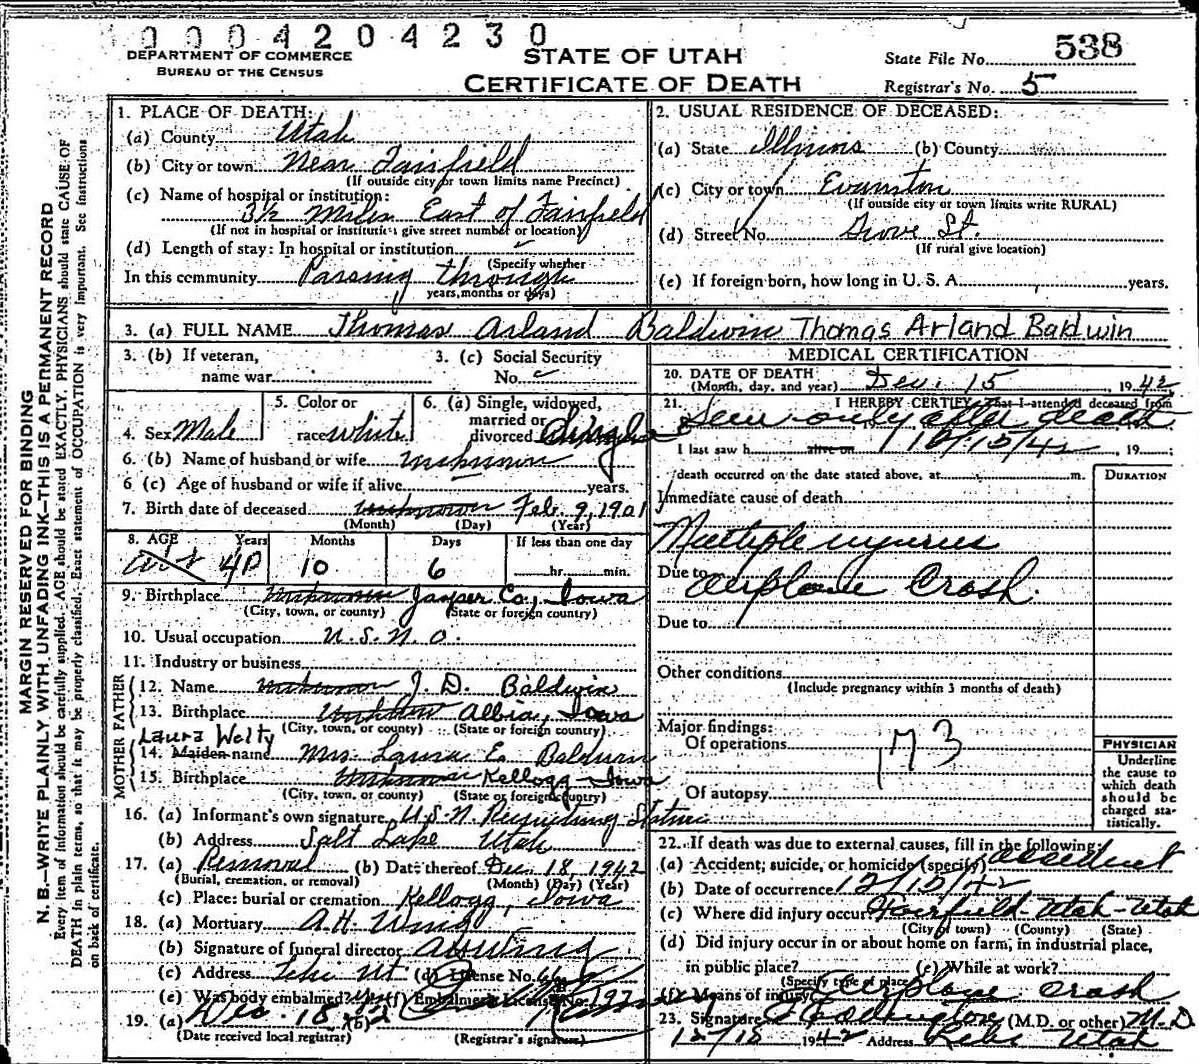 0 0 0 4 2 0 4 2 3 0
DEPARTMENT OF COMMERCE
BUREAU OF THE CENSUS
STATE OF UTAH
CERTIFICATE OF DEATH
State File No. 538
Registrar's No. 5
MARGIN RESERVED FOR BINDING
N. B.—WRITE PLAINLY WITH UNFADING INK—THIS IS A PERMANENT RECORD
Every item of information should be carefully supplied. AGE should be stated EXACTLY. PHYSICIANS should state CAUSE OF
DEATH in plain terms, so that it may be properly classified. Exact statement of OCCUPATION is very important. See instructions
on back of certificate.
1. PLACE OF DEATH:
(a) County Utah
(b) City or town Near Fairfield
(If outside city or town limits name Precinct)
(c) Name of hospital or institution:
3½ Miles East of Fairfield
(If not in hospital or institution give street number or location)
(d) Length of stay: In hospital or institution
(Specify whether
In this community Passing through
years, months or days)
2. USUAL RESIDENCE OF DECEASED:
(a) State Illinois (b) County
(c) City or town Evanston
(If outside city or town limits write RURAL)
(d) Street No. Grove St.
(If rural give location)
(e) If foreign born, how long in U. S. A. years.
3. (a) FULL NAME Thomas Arland Baldwin Thomas Arland Baldwin
3. (b) If veteran,
name war
3. (c) Social Security
No.
4. Sex Male
5. Color or
race white
6. (a) Single, widowed,
married or
divorced Single
6. (b) Name of husband or wife unknown
6 (c) Age of husband or wife if alive years.
7. Birth date of deceased unknown Feb. 9, 1901
(Month) (Day) (Year)
8. AGE Years Months Days If less than one day
40 10 6 hr. min.
9. Birthplace unknown Jasper Co., Iowa
(City, town, or county) (State or foreign country)
10. Usual occupation U.S.N.O.
11. Industry or business
FATHER
12. Name unknown J. D. Baldwin
13. Birthplace unknown Albia, Iowa
(City, town, or county) (State or foreign country)
MOTHER
Laura Welty
14. Maiden name Mrs. Laura E. Baldwin
15. Birthplace unknown Kellogg Iowa
(City, town, or county) (State or foreign country)
16. (a) Informant's own signature U.S.N. Recruiting Station
(b) Address Salt Lake Utah
17. (a) Removal (b) Date thereof Dec 18, 1942
(Burial, cremation, or removal) (Month) (Day) (Year)
(c) Place: burial or cremation Kellogg, Iowa
18. (a) Mortuary A.H. Wing
(b) Signature of funeral director AH Wing
(c) Address Lehi Ut. (d) License No.
(e) Was body embalmed? Yes (f) Embalmer's License No.
19. (a) Dec. 18 (b)
(Date received local registrar) (Registrar's signature)
MEDICAL CERTIFICATION
20. DATE OF DEATH
(Month, day, and year) Dec. 15, 1942
21. I HEREBY CERTIFY That I attended deceased from
Seen only after death
I last saw h alive on 12/15/42, 19
death occurred on the date stated above, at m.
DURATION
Immediate cause of death
Multiple injuries
Due to
Airplane Crash.
Due to
Other conditions
(Include pregnancy within 3 months of death)
Major findings:
Of operations 173
Of autopsy
PHYSICIAN
Underline
the cause to
which death
should be
charged sta-
tistically.
22. If death was due to external causes, fill in the following:
(a) Accident, suicide, or homicide (specify) accident
(b) Date of occurrence 12/15/42
(c) Where did injury occur? Fairfield-Utah-Utah
(City or town) (County) (State)
(d) Did injury occur in or about home on farm, in industrial place,
in public place? (e) While at work?
(Specify type of place)
(f) Means of injury Airplane Crash
23. Signature (M.D. or other) M.D.
12/18 1942 Address Lehi Utah